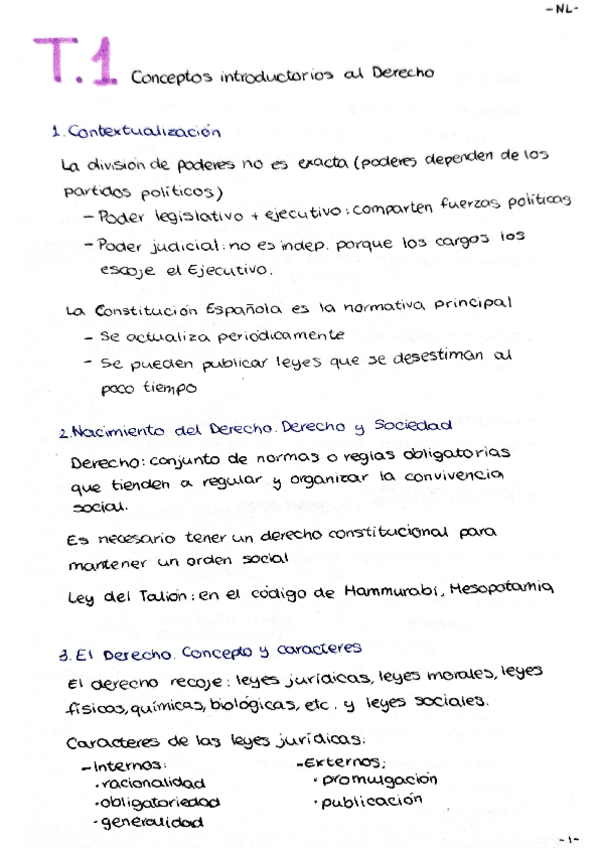 -NL-
T.1 Conceptos introductorios al Derecho
1. Contextualización
La división de poderes no es exacta (poderes dependen de los
partidos políticos)
- Poder legislativo + ejecutivo: comparten fuerzas políticas
- Poder judicial: no es indep. porque los cargos los
escoje el Ejecutivo.
La Constitución Española es la normativa principal
- Se actualiza periódicamente
- Se pueden publicar leyes que se desestiman al
poco tiempo
2. Nacimiento del Derecho. Derecho y Sociedad
Derecho: conjunto de normas o reglas obligatorias
que tienden a regular y organizar la convivencia
social.
Es necesario tener un derecho constitucional para
mantener un orden social
Ley del Talión: en el código de Hammurabi, Mesopotamia
3. El Derecho. Concepto y caracteres
El derecho recoje: leyes jurídicas, leyes morales, leyes
físicas, químicas, biológicas, etc. y leyes sociales.
Caracteres de las leyes jurídicas:
- Internos:
· racionalidad
· obligatoriedad
· generalidad
- Externos:
· promulgación
· publicación
-1-